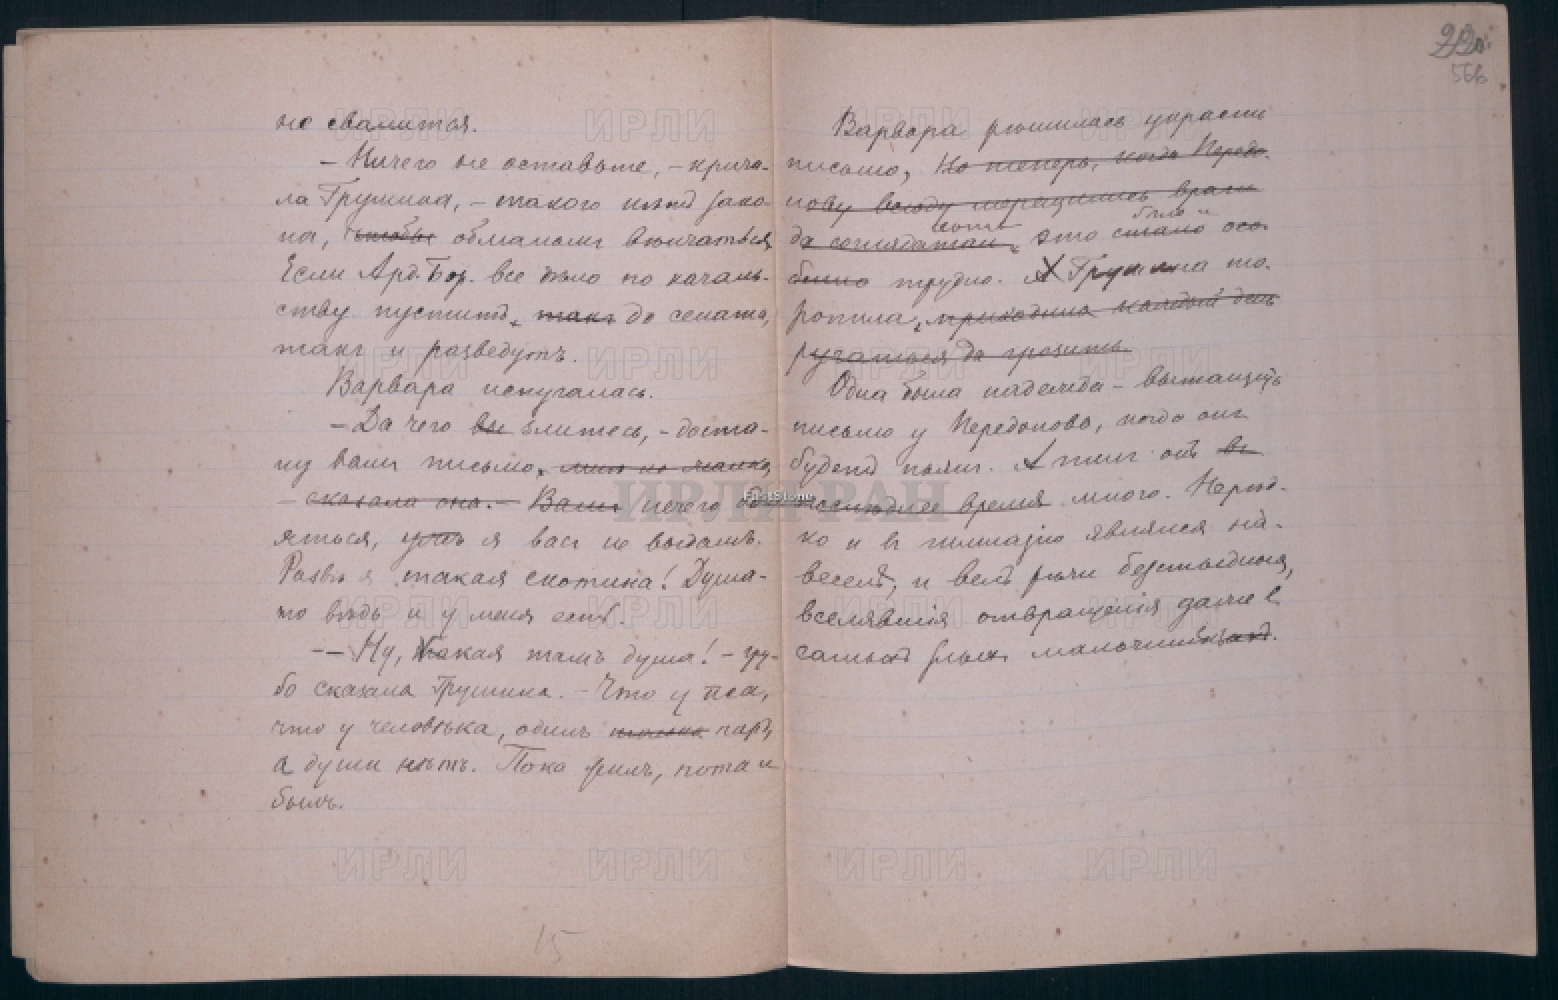 не свалится.
– Ничего не оставьте, – крича-
ла Грушина, – такого нѣтъ зако-
на, чтобы обманомъ вѣнчаться.
Если Ард. Бор. все дѣло по началь-
ству пуститъ, такъ до сената,
такъ и разведутъ.
Варвара испугалась.
– Да чего вы злитесь, – доста-
ну вамъ письмо,
– сказала она. – Вамъ нечего бо-
яться, ужъ я васъ не выдамъ.
Развѣ я такая скотина! Душа-
то вѣдь и у меня есть.
– Ну, какая тамъ душа! – гру-
бо сказала Грушина. – Что у пса,
что у человѣка, одинъ только паръ,
а души нѣтъ. Пока жилъ, пота и
былъ.
15
22
566
Варвара рѣшилась украсть
письмо, Но теперь, когда Передо-
нову всюду мерещились враги
хоть было и
да соглядатаи, это стало осо-
бенно трудно. А Грушина то-
ропила, приходила каждый день
ругаться да грозить.
Одна была надежда – вытащить
письмо у Передонова, когда онъ
будетъ пьянъ. А пилъ онъ въ
послѣднее время много. Нерѣд-
ко и въ гимназію являлся на-
веселѣ, и велъ рѣчи безстыдныя,
вселявшія отвращеніе даже въ
самыхъ злыхъ мальчишкахъ.
ИРЛИ РАН
FastStone